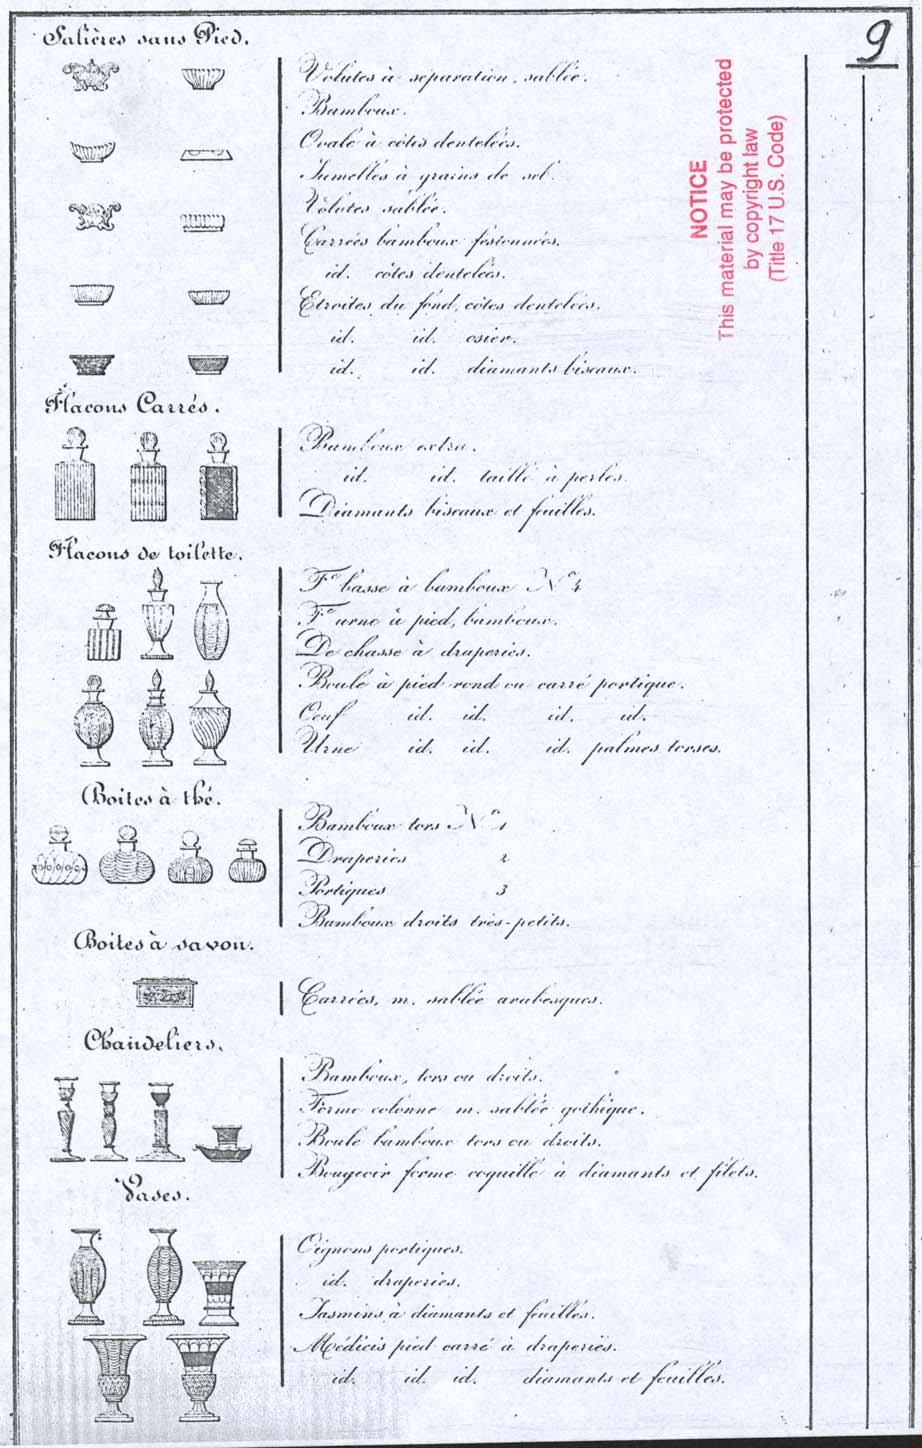 9
NOTICE
This material may be protected
by copyright law
(Title 17 U.S. Code)
Salières sans Pied.
Volutes à séparation, sablée.
Bamboux.
Ovale à côtes dentelées.
Jumelles à grains de sel.
Volutes sablée.
Carrées bamboux festonnées.
id. côtes dentelées.
Etroites du fond, côtes dentelées.
id. id. osier.
id. id. diamants biseaux.
Flacons Carrés.
Bamboux extra.
id. id. taillé à perles.
Diamants biseaux et feuilles.
Flacons de toilette.
Fe basse à bamboux No 4
Fe urne à pied, bamboux.
De chasse à draperies.
Boule à pied rond ou carré portique.
Oeuf id. id. id. id.
Urne id. id. id. palmes torses.
Boites à thé.
Bamboux tors No 1
Draperies 2
Portiques 3
Bamboux droits très-petits.
Boites à savon.
Carrées, m. sablée arabesques.
Chandeliers.
Bamboux, tors ou droits.
Forme colonne m. sablée gothique.
Boule bamboux tors ou droits.
Bougeoir forme coquille à diamants et filets.
Vases.
Oignons portiques.
id. draperies.
Jasmins à diamants et feuilles.
Médicis pied carré à draperies.
id. id. id. diamants et feuilles.